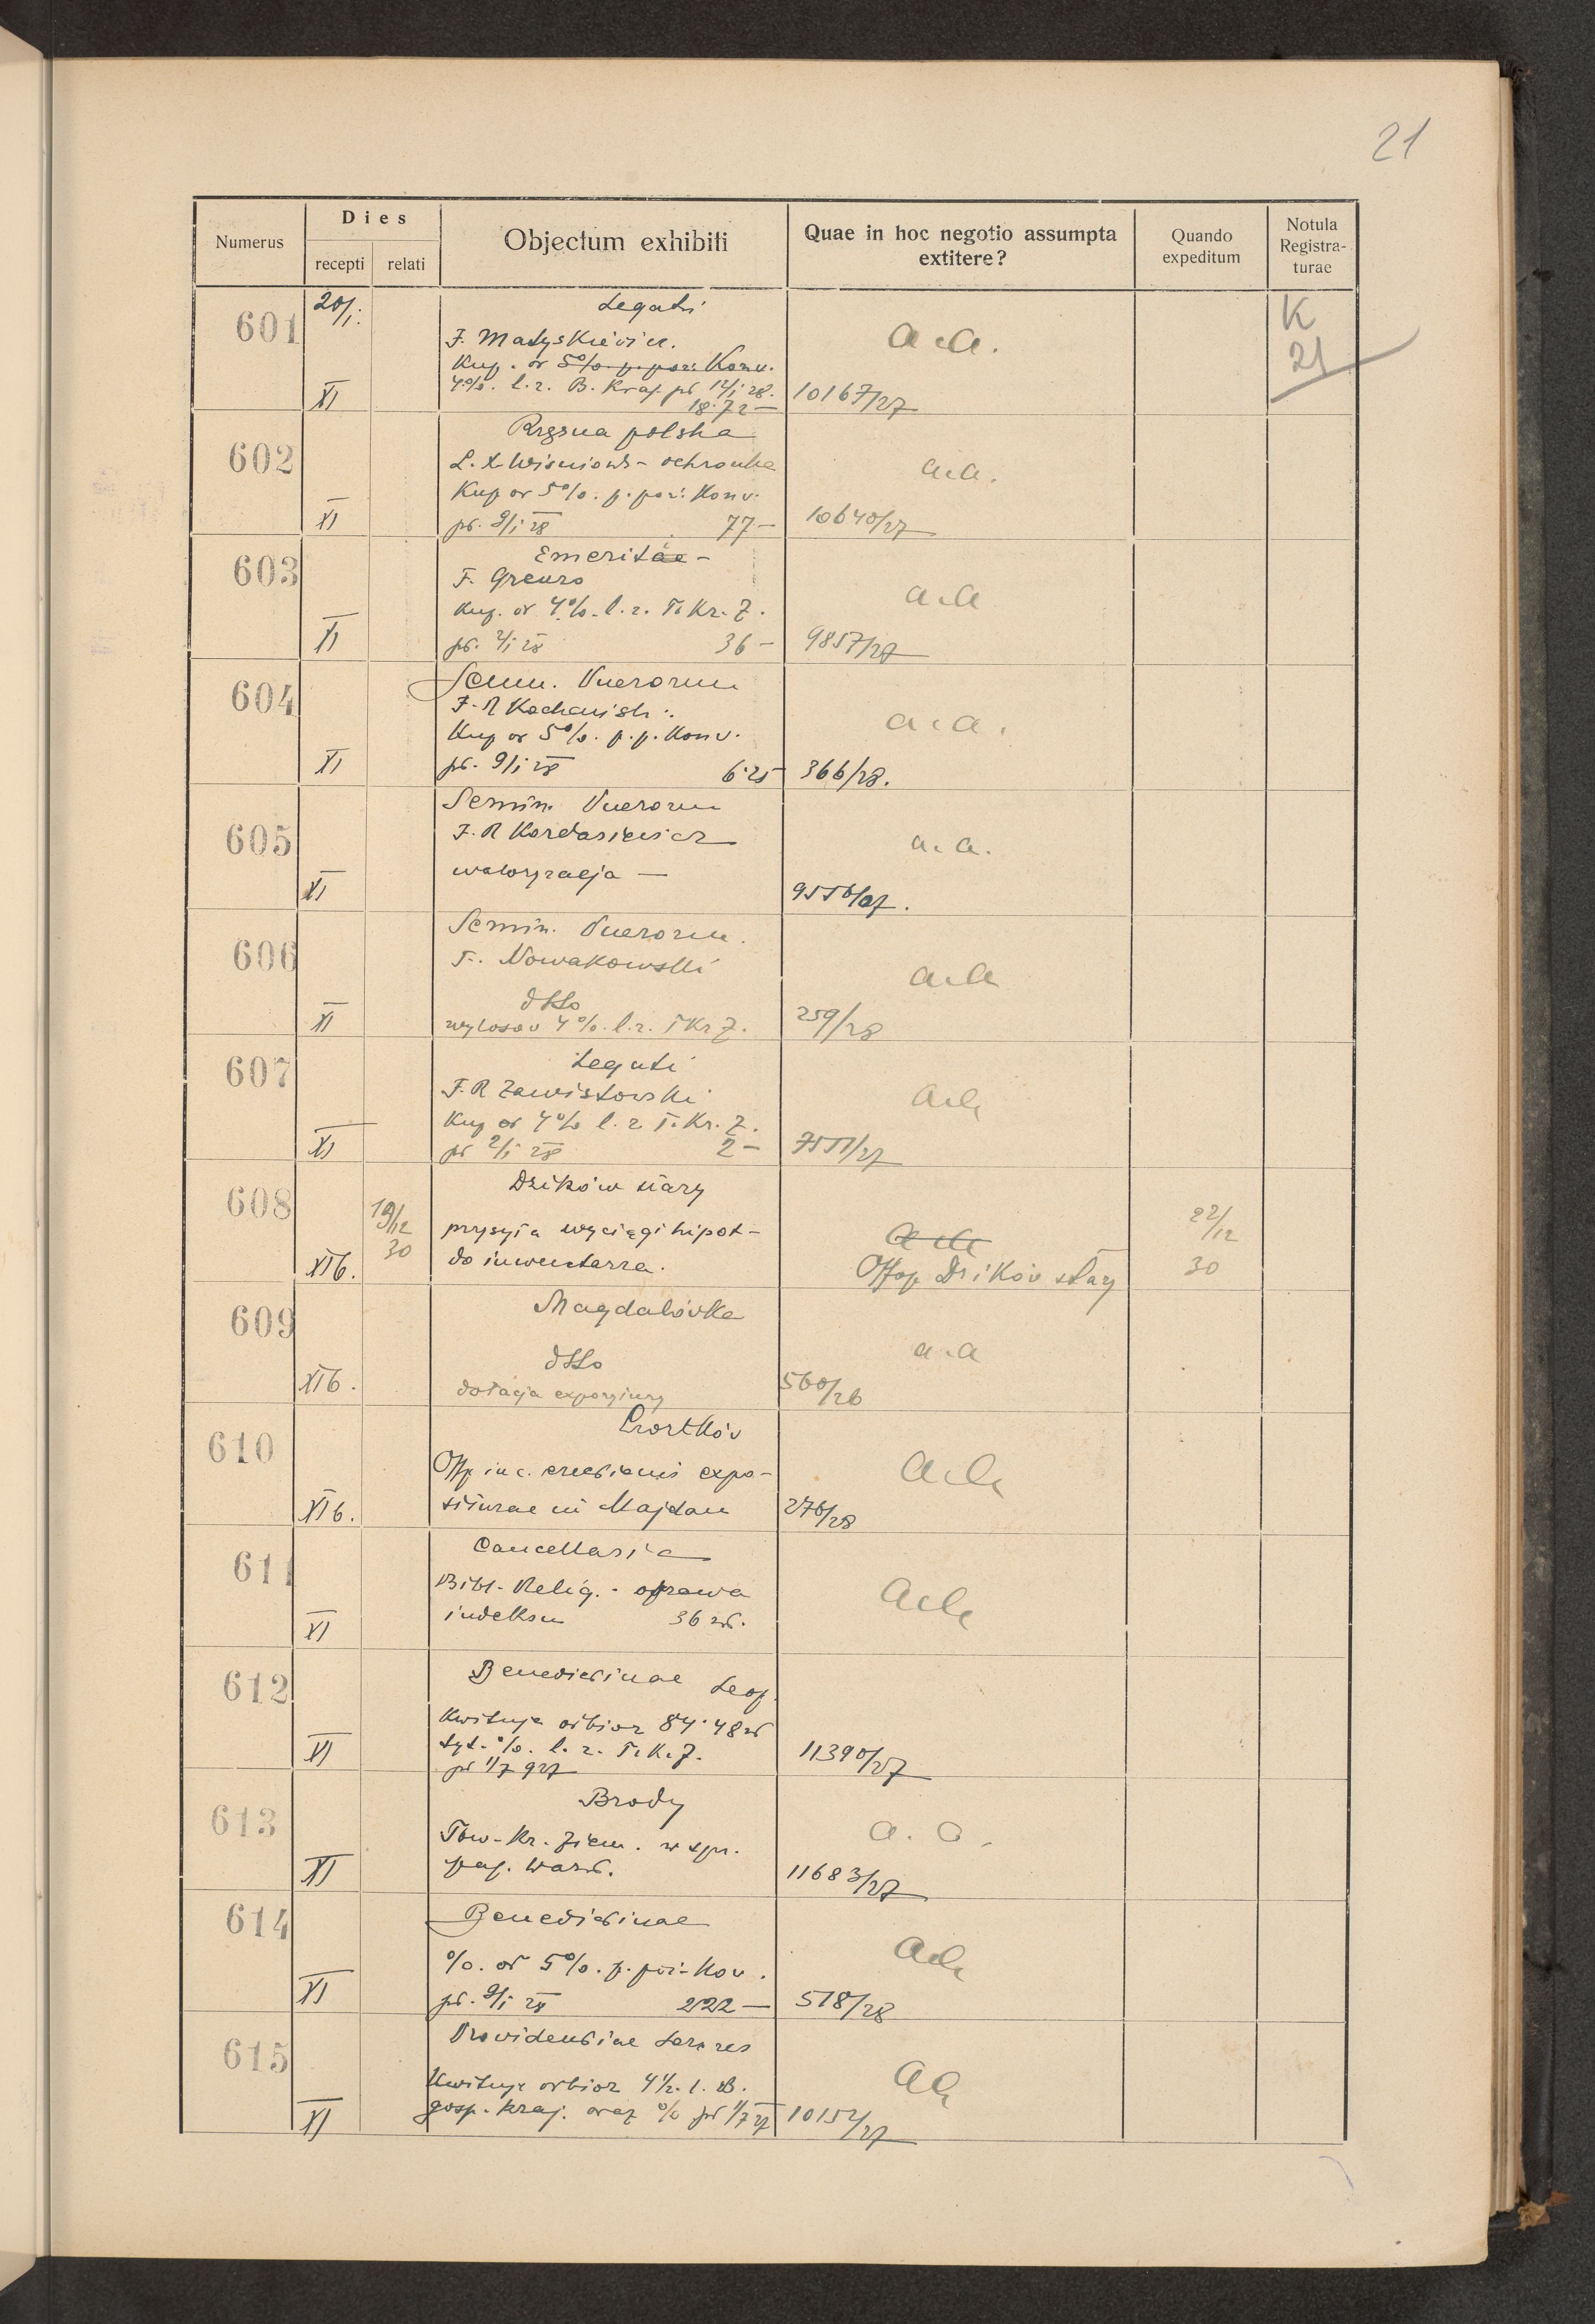 21
Numerus
Dies
recepti
relati
Objectum exhibiti
Quae in hoc negotio assumpta
extitere?
Quando
expeditum
Notula
Registra-
turae
601
20/I.
XI
Legati
F. Matyskiewicz.
Kup. od 5% p. poż. Konw.
4%. l. z. B. Kraj. pł. 12/I 28.
18.72 —
a.a.
10167/27
K
21
602
XI
Rzęsna polska
Kup od 5%. p. poż. Konw.
pł. 9/I 28 77 —
a.a.
10640/27
603
XI
Emeritae —
F.
Kup. od 4%. l. z. T. Kr. Z.
pł. 2/I 28 36 —
a.a
9857/27
604
XI
Semin. Puerorum
F. R Kochański.
Kup od 5%. p. p. Konw.
pł. 9/I 28 6.25
a.a.
366/28.
605
XI
Semin. Puerorum
F. R Kordasiewicz
waloryzacja —
a.a.
9556/27.
606
XI
Semin. Puerorum.
F. Nowakowski
dtto
wylosow 4%. l. z. T Kr Z.
a.a
259/28
607
XI
Legati
F. R Zawistowski
Kup od 4% l. z. T. Kr. Z.
pł 2/I 28 2 —
a.a
7551/27
608
XIb.
19/12
30
Dzików stary
przysyła wyciągi hipot-
do inwentarza.
a.a
Offop Dzików stary
22/12
30
609
XIb.
Magdalówka
dtto
dotacja expozytury
a.a
560/26
610
XIb.
Czortków
Offp in c. erectionis expo-
siturae in Majdan
a.a
276/28
611
XI
Cancellaria
Bibl. Relig. - oprawa
indeksu 36 zł.
a.a
612
XI
Benedictinae Leop.
Kwituje odbiór 84.48 zł
tyt. %. l. z. T. K. Z.
pł 1/7 927
11390/27
613
XI
Brody
Tow. Kr. Ziem. w spr.
pap. wart.
a.a.
11683/27
614
XI
Benedictinae
%. od 5%. p. poż. Kow.
pł. 9/I 28 222 —
a.a
518/28
615
XI
Providentiae Sorores
Kwituje odbiór 4½. l. B.
gosp. kraj. oraz % pł 1/7 27
a.a
10152/27